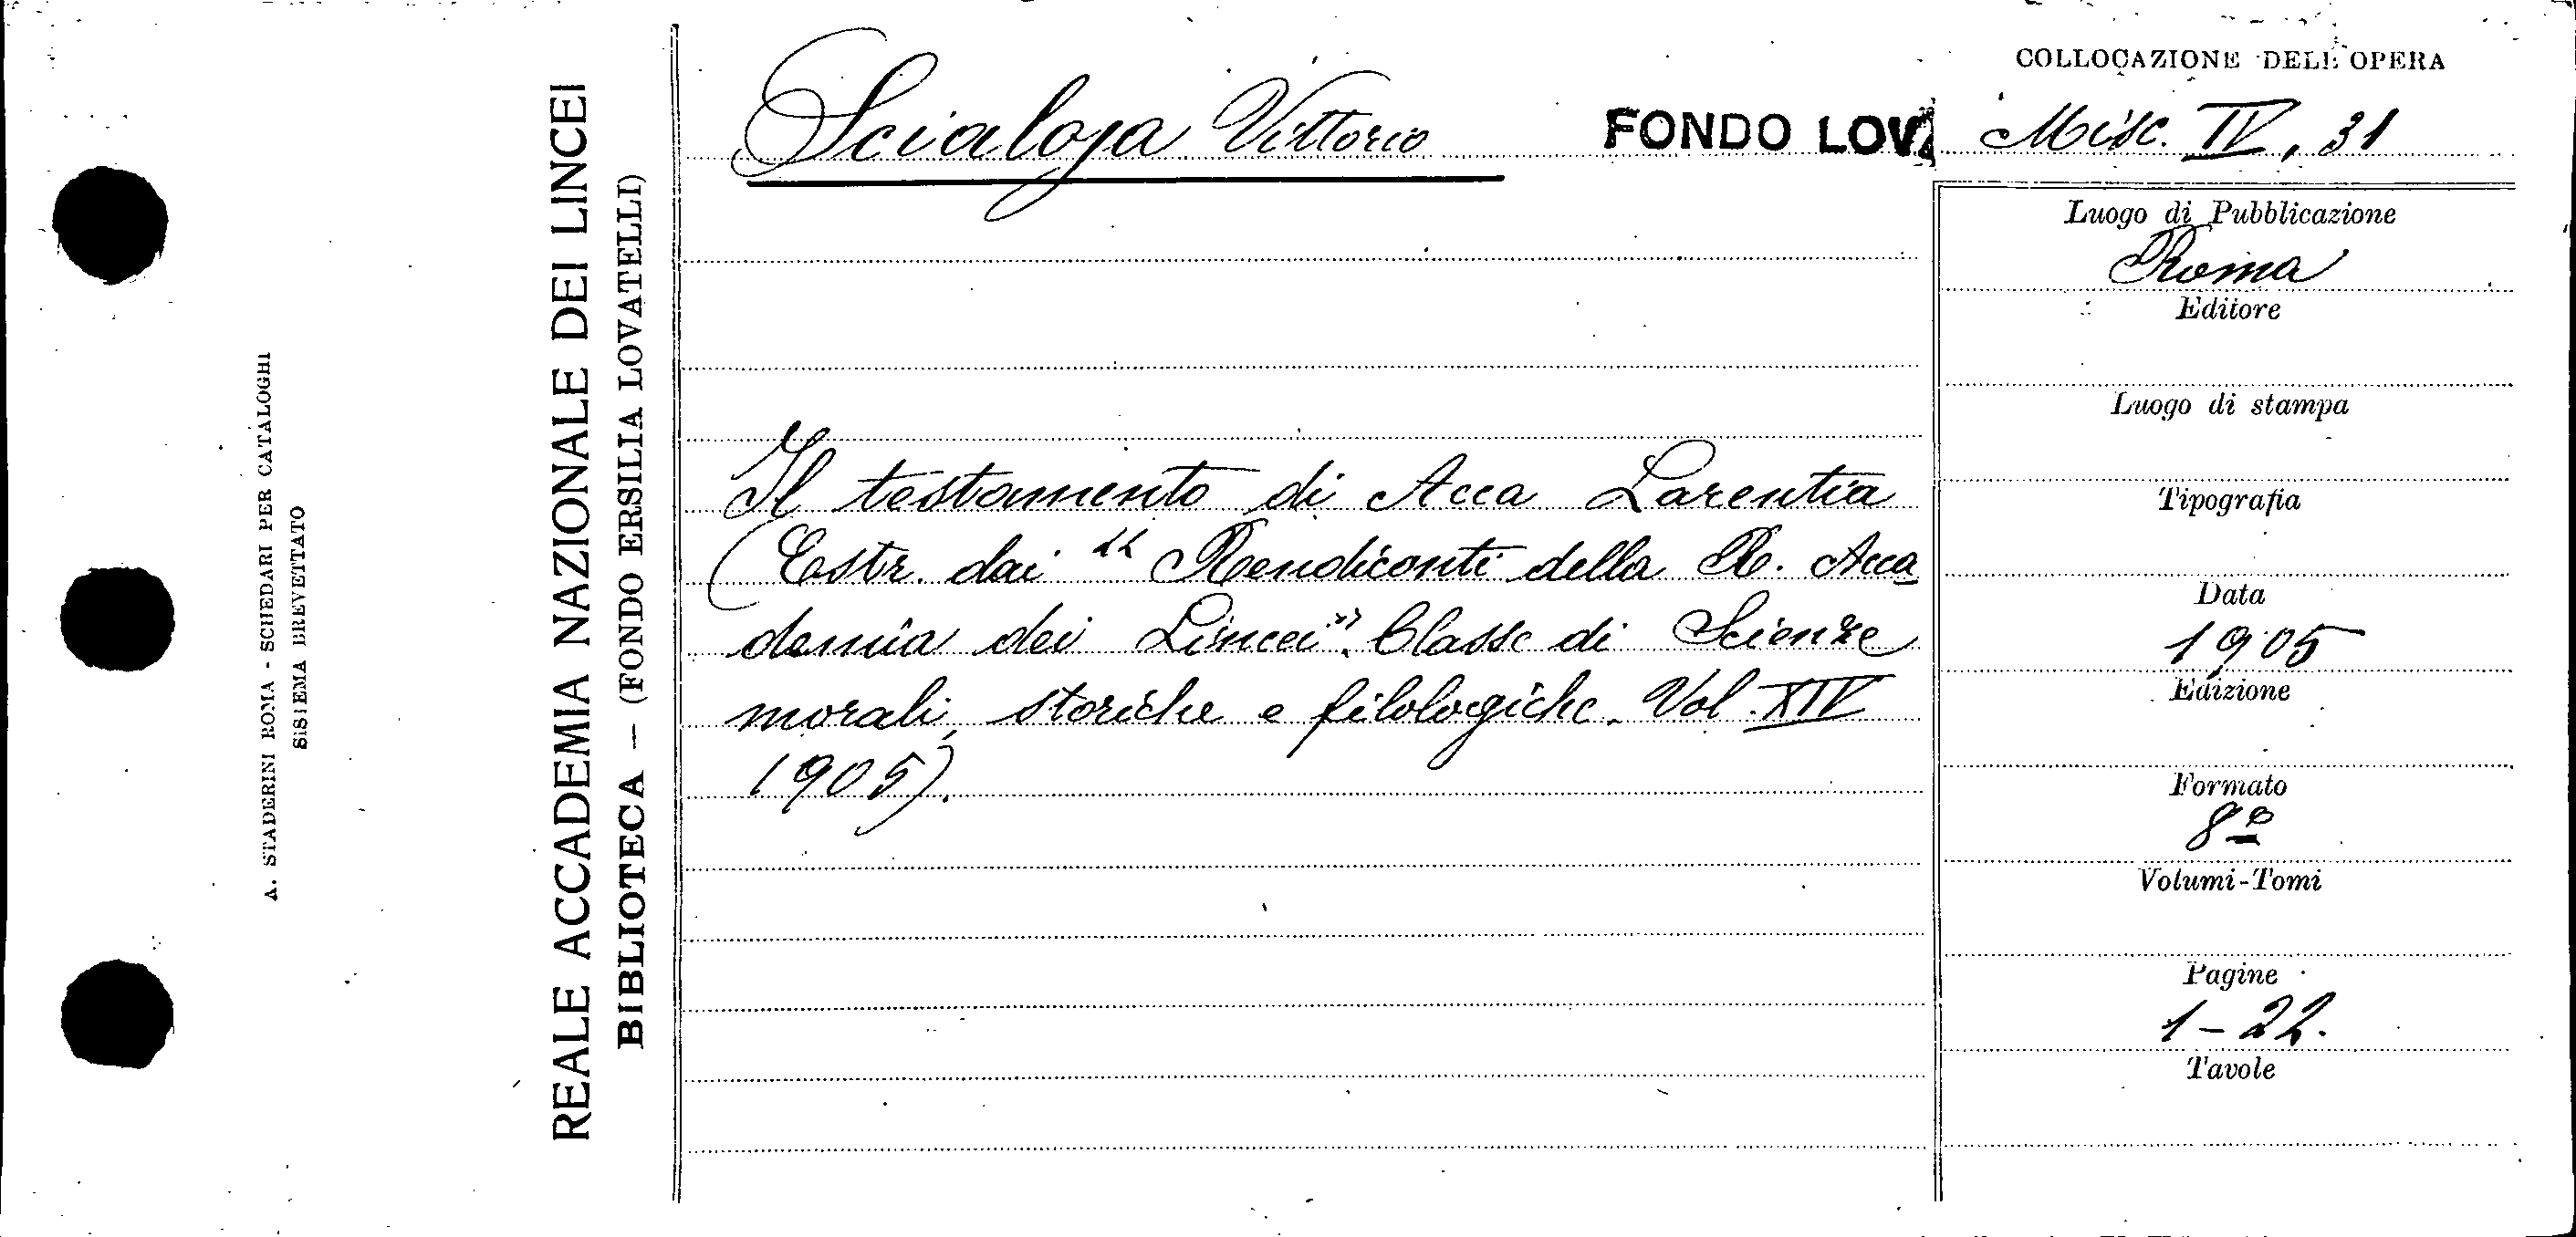 A. STADERINI ROMA - SCHEDARI PER CATALOGHI
SISTEMA BREVETTATO
REALE ACCADEMIA NAZIONALE DEI LINCEI
BIBLIOTECA — (FONDO ERSILIA LOVATELLI)
Scialoja Vittorio
FONDO LOVA
COLLOCAZIONE DELL'OPERA
Misc. IV, 31
Il testamento di Acca Larentia
(Estr. dai "Rendiconti della R. Acca
demia dei Lincei". Classe di Scienze
morali, storiche e filologiche. Vol. XIV
1905).
Luogo di Pubblicazione
Roma
Editore
Luogo di stampa
Tipografia
Data
1905
Edizione
Formato
8º
Volumi-Tomi
Pagine
1-22.
Tavole